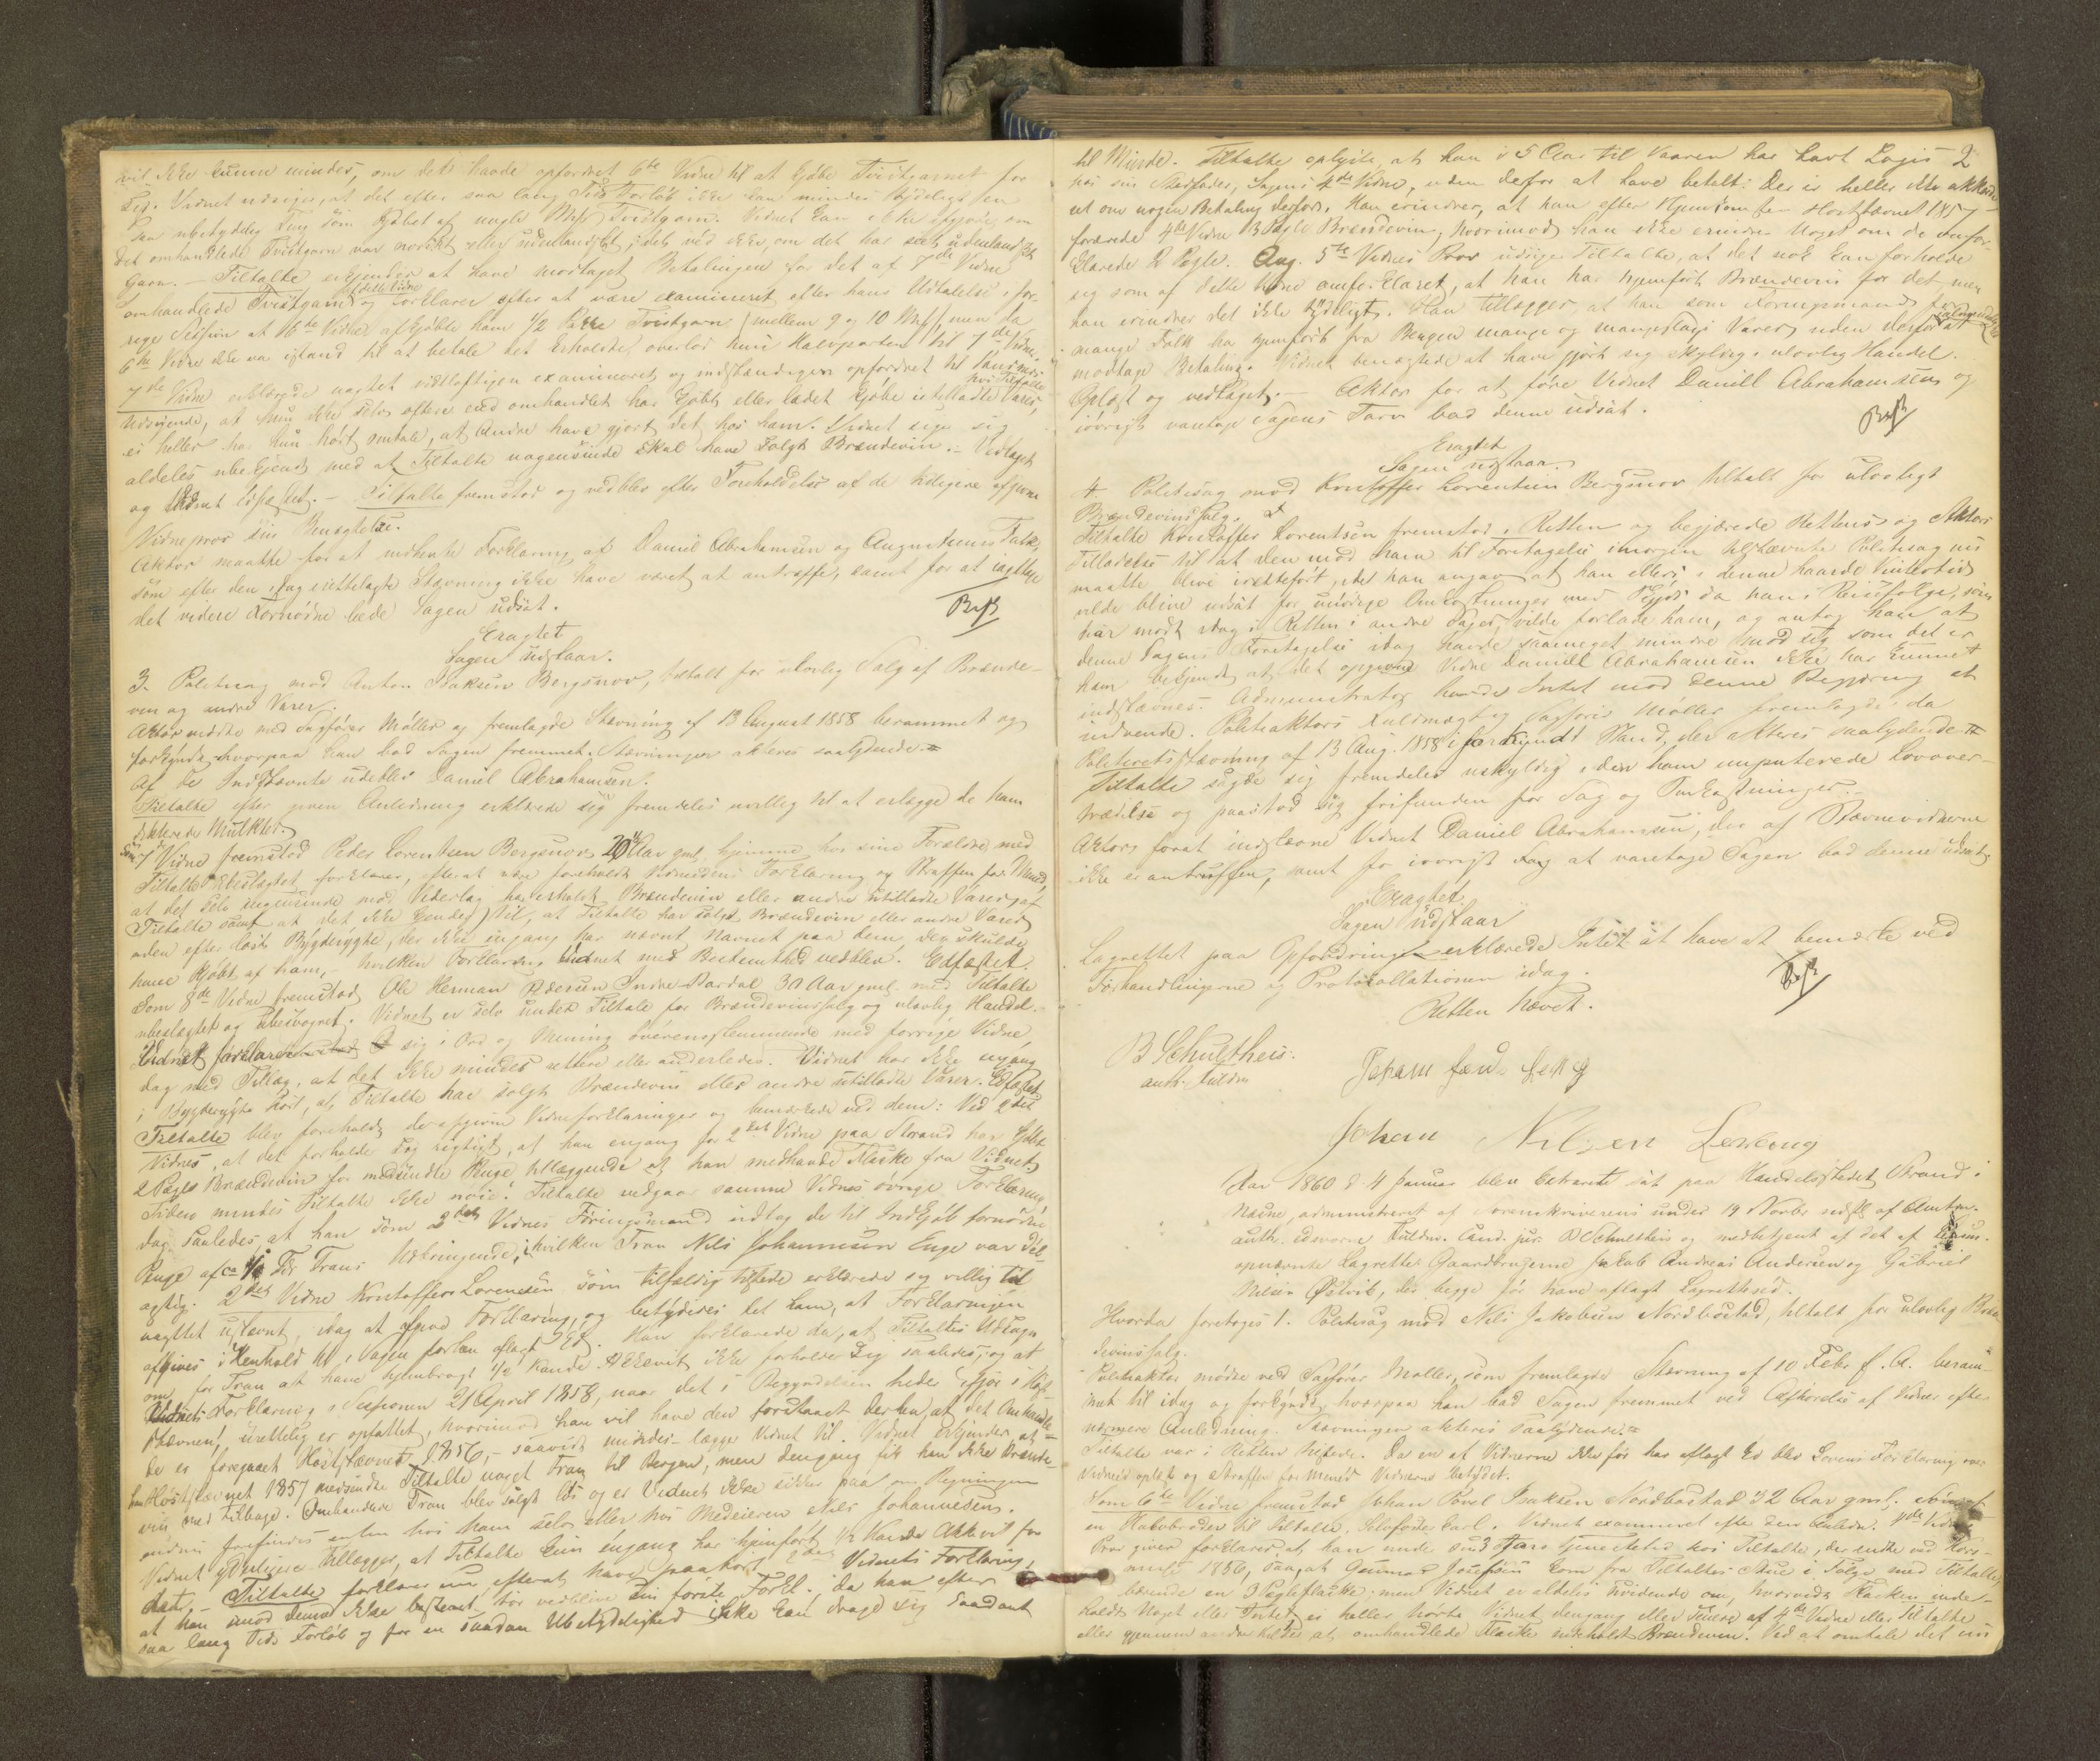 vil ikke kunne mindes, om det havde opfordret 6te Vidne til at kjøbe Tvistgarnet for
sig. Vidnet udsiger, at det efter saa lang Tids Forløb ikke kan mindes tydeligt en
saa ubetydelig Ting som Kjøbet af nogle Mkr Tvistgarn. Vidnet kan ikke opgive, om
det omhandlede Tvistgarn var norskt eller udenlandskt, idet det ved ikke, om det har seet udenlandskt
Garn. — Tiltalte erkjender at have modtaget Betalingen for det af 7de Vidne
omhandlede Tvistgarn af dette Vidne og forklarer efter at være examineret efter hans Udtalelse i for-
rige Session at 6te Vidne afkjøbte ham 1/2 Pakke Tvistgarn (mellem 9 og 10 Mkr) men da
6te Vidne ikke var istand til at betale det Erholdte, overlod hun Halvparten til 7de Vidne.
7de Vidne erklærede uagtet vidtløftigen examineret og indstændigen opfordret til Sandheds
Udsigende, at hun ikke selv oftere end omhandlet har kjøbt eller ladet kjøbe hos Tiltalte utilladte Varer,
ei heller har hun hørt omtale, at Andre have gjort det hos ham. Vidnet siger sig
aldeles ubekjendt med at Tiltalte nogensinde skal have solgt Brændevin. — Vedtaget
og Vidnet edfæstet. — Tiltalte fremstod og vedblev efter Foreholdelse af de tidligere afgivne
Vidneprov sin Benægtelse.
Aktor maatte for at indhente Forklaring af Daniel Abrahamsen og Augustinus Falk,
som efter den idag irettelagte Stævning ikke have været at antræffe, samt for at iagttage
det videre Fornødne bede Sagen udsat.
Eragtet
Sagen udstaar.
3. Politisag mod Anton Isaksen Bergsnov, tiltalt for ulovlig Salg af Brænde-
vin og andre Varer.
Aktor mødte med Sagfører Møller og fremlagde Stævning af 13 August 1858 berammet og
forkyndt, hvorpaa han bad Sagen fremmet. Stævningen akteres saalydende
Af de Indstævnte udeblev Daniel Abrahamsen.
Tiltalte efter given Anledning erklærede sig fremdeles uvillig til at erlægge de ham
dikterede Mulkter.
Som 7de Vidne fremstod Peder Lorentsen Bergsnov 20 Aar gml. hjemme hos sine Forældre med
Tiltalte ubeslægtet, forklarer, efterat være foreholdt Vidneedens Forklaring og Straffen for Meened,
at det selv ingensinde mod Vederlag har erholdt Brændevin eller andre utilladte Varer af
Tiltalte samt at det ikke kjender til, at Tiltalte har solgt Brændevin eller andre Varer
uden efter løst Bygderygte, der ikke engang har nævnt Navnet paa dem, der skulde
have kjøbt af ham, — hvilken Forklaring Vidnet med Bestemthed vedblev. Edfæstet.
Som 8de Vidne fremstod Ole Herman Pedersen Indre-Bardal 30 Aar gml. med Tiltalte
ubeslægtet og ubesvogret. Vidnet er selv under Tiltale for Brændevinssalg og ulovlig Handel.
Vidnet forklarer sig i Ord og Mening overensstemmende med forrige Vidne,
dog med Tillæg, at det ikke mindes rettere eller anderledes. Vidnet har ikke engang
i Bygderygte hørt, at Tiltalte har solgt Brændevin eller andre utilladte Varer. Edfæstet.
Tiltalte blev foreholdt de afgivne Vidneforklaringer og bemærkede ved dem: Ved 2det
Vidnes, at det forholde sig rigtigt, at han engang for 2det Vidne paa Strand har kjøbt
2 Pægle Brændevin for medsendte Penge, tillæggende at han medhavde Flaske fra Vidnet.
Tiden mindes Tiltalte ikke nøie. Tiltalte vedgaar samme Vidnes øvrige Forklaring,
dog saaledes, at han som 2det Vidnes Føringsmand udtog de til Indkjøb fornødne
Penge af ca 1/2 Td. Trans Udbringende, i hvilken Tran Nils Johannesen Enge var del-
agtig. 2det Vidne Kristoffer Lorensen som tilfældig tilstede erklærede sig villig til
uagtet ustevnt, idag at afgive Forklaring, og betydedes det ham, at Forklaringen
afgives i Henhold til i Sagen forhen aflagt Ed. Han forklarede da, at Tiltaltes Udsagn
om, for Tran at have hjembragt 1/2 Kande Akkevit ikke forholder sig saaledes, og at
Vidnets Forklaring i Sessionen 21 April 1858, naar det i Begyndelsen heder „igjor i Høst-
stævnen", urettelig er opfattet, hvorimod han vil have den forstaaet derhen, at det Omhandle-
de er foregaaet Høststævnet 1856, — saavidt mindes — lægge Vidnet til. Vidnet erkjender, at
han Høststævnet 1857 medsendte Tiltalte noget Tran til Bergen, men dengang fik han ikke Brænde-
vin med tilbage. Omhandlede Tran blev solgt løs og er Vidnet ikke sikker paa om Regningen
endnu forefindes enten hos ham selv eller hos Medeieren Nils Johannesen.
Vidnet ydterligere tillægger, at Tiltalte kun engang har hjemført 1/2 Kande Akkevit for
det. — Tiltalte forklarer nu, efterat have paahørt 2det Vidnets Forklaring,
at han imod denne ikke bestemt tør vedblive sin første Forkl. da han efter
saa lang Tids Forløb og for en saadan Ubetydelighed ikke kan drage sig Saadant
2
til Minde. Tiltalte oplyste, at han i 5 Aar til Vaaren har havt Logis
hos sin Stedfader, Sagens 4de Vidne, uden derfor at have betalt. Der er heller ikke akkord-
eret om nogen Betaling derfor. Han erindrer, at han efter Hjemkomsten Høststævnet 1857
forærede 4de Vidne 3 Pægle Brændevin, hvorimod han ikke erindrer Noget om de omfor-
klarede 2 Pægle. Ang. 5te Vidnes Prov udsiger Tiltalte, at det nok kan forholde
sig som af dette Vidne omforklaret, at han har hjemført Brændevin for det, men
han erindrer det ikke tydeligt. Han tillægger, at han som Føringsmand for
mange Folk har hjemført fra Bergen mange og mangeslags Varer uden derfor at
modtage Betaling. Vidnet benægtede at have gjort sig skyldig i ulovlig Handel.
Oplæst og vedtaget. — Aktor for at føre Vidnet Daniel Abrahamsen og
iøvrigt varetage Sagens Tarv bad denne udsat.
Eragtet
Sagen udstaar.
4. Politisag mod Kristoffer Lorentsen Bergsnov tiltalt for ulovligt
Brændevinssalg.
Tiltalte Kristoffer Lorentsen fremstod i Retten og begjærede Rettens og Aktors
Tilladelse til at den mod ham til Foretagelse imorgen tilstævnte Politisag nu
maatte blive iretteført, idet han angav at han ellers i denne haarde Vintertid
vilde blive udsat for unødige Omkostninger med Skyds da hans Reisefølge, som
har mødt idag i Retten i andre Sager, vilde forlade ham, og antog han at
denne Sagens Foretagelse idag havde saameget mindre imod sig som det er
ham bekjendt at det opgivne Vidne Daniel Abrahamsen ikke har kunnet
indstævnes. Administrator havde Intet mod denne Begjæring at
indvende. Politiaktors Fuldmægtig Sagfører Møller fremlagde da
Politiretsstævning af 13 Aug. 1858 i forkyndt Stand, der akteres saalydende
Tiltalte sagde sig fremdeles uskyldig i den ham imputerede Lovover-
trædelse og paastod sig frifunden for Sag og Omkostninger. —
Aktors forat indstævne Vidnet Daniel Abrahamsen, der af Stævnevidnerne
ikke er antruffen, samt for iøvrigt at varetage Sagen bad denne udsat.
Eragtet
Sagen udstaar
Lagrettet paa Opfordring erklærede Intet at have at bemærke ved
Forhandlingerne og Protokollationen idag.
Retten hævet.
B Schultheis.
auth. Fuldm
Johan Nilsen Leskong
Aar 1860 d. 4 Januar blev Extraret sat paa Handelsstedet Strand i
Næsne, administreret af Sorenskriverens under 19 Novbr sidstl. af Amtm.
auth. edsvorne Fuldm. Cand. jur. B Schultheis og medbetjent af det af
opnævnte Lagrette: Gaardbrugerne Jakob Andreas Andersen og Gabriel
Nilsen Østvik, der begge før have aflagt Lagrettesed.
Hvorda foretoges 1. Politisag mod Nils Jakobsen Nordbostad, tiltalt for ulovlig Bræn-
devinssalg.
Politiaktor mødte ved Sagfører Møller, som fremlagde Stævning af 10 Febr f. A. beram-
met til idag og forkyndt, hvorpaa han bad Sagen fremmet ved Afhørelse af Vidner efter
nærmere Anledning. Stævningen akteres saalydende.
Tiltalte var i Retten tilstede. Da en af Vidnerne ikke før har aflagt Ed blev Lovens Forklaring over
Vidneed oplæst og Straffen for Meened Vidnerne betydet.
Som 6te Vidne fremstod Johan Povel Isaksen Nordbostad 32 Aar gml.
en Halvbroder til Tiltalte. Vidnet examineret efter den Anledn. 4de Vidnes
Prov giver forklarer, at han under sin 3 Aars Tjenestetid hos Tiltalte, der endte ved Kors-
messe 1856, saa, at Gunnar Josefsen kom fra Tiltaltes Stue i Følge med Tiltalte,
bærende en 3 Pægleflaske; men Vidnet er aldeles uvidende om, hvorvidt Flasken inde-
holdt Noget eller Intet, ei heller hørte Vidnet dengang eller senere af 4de Vidne eller Tiltalte
eller gjennem andre Kilder, at omhandlede Flaske indeholdt Brændevin. Ved at omtale det nu